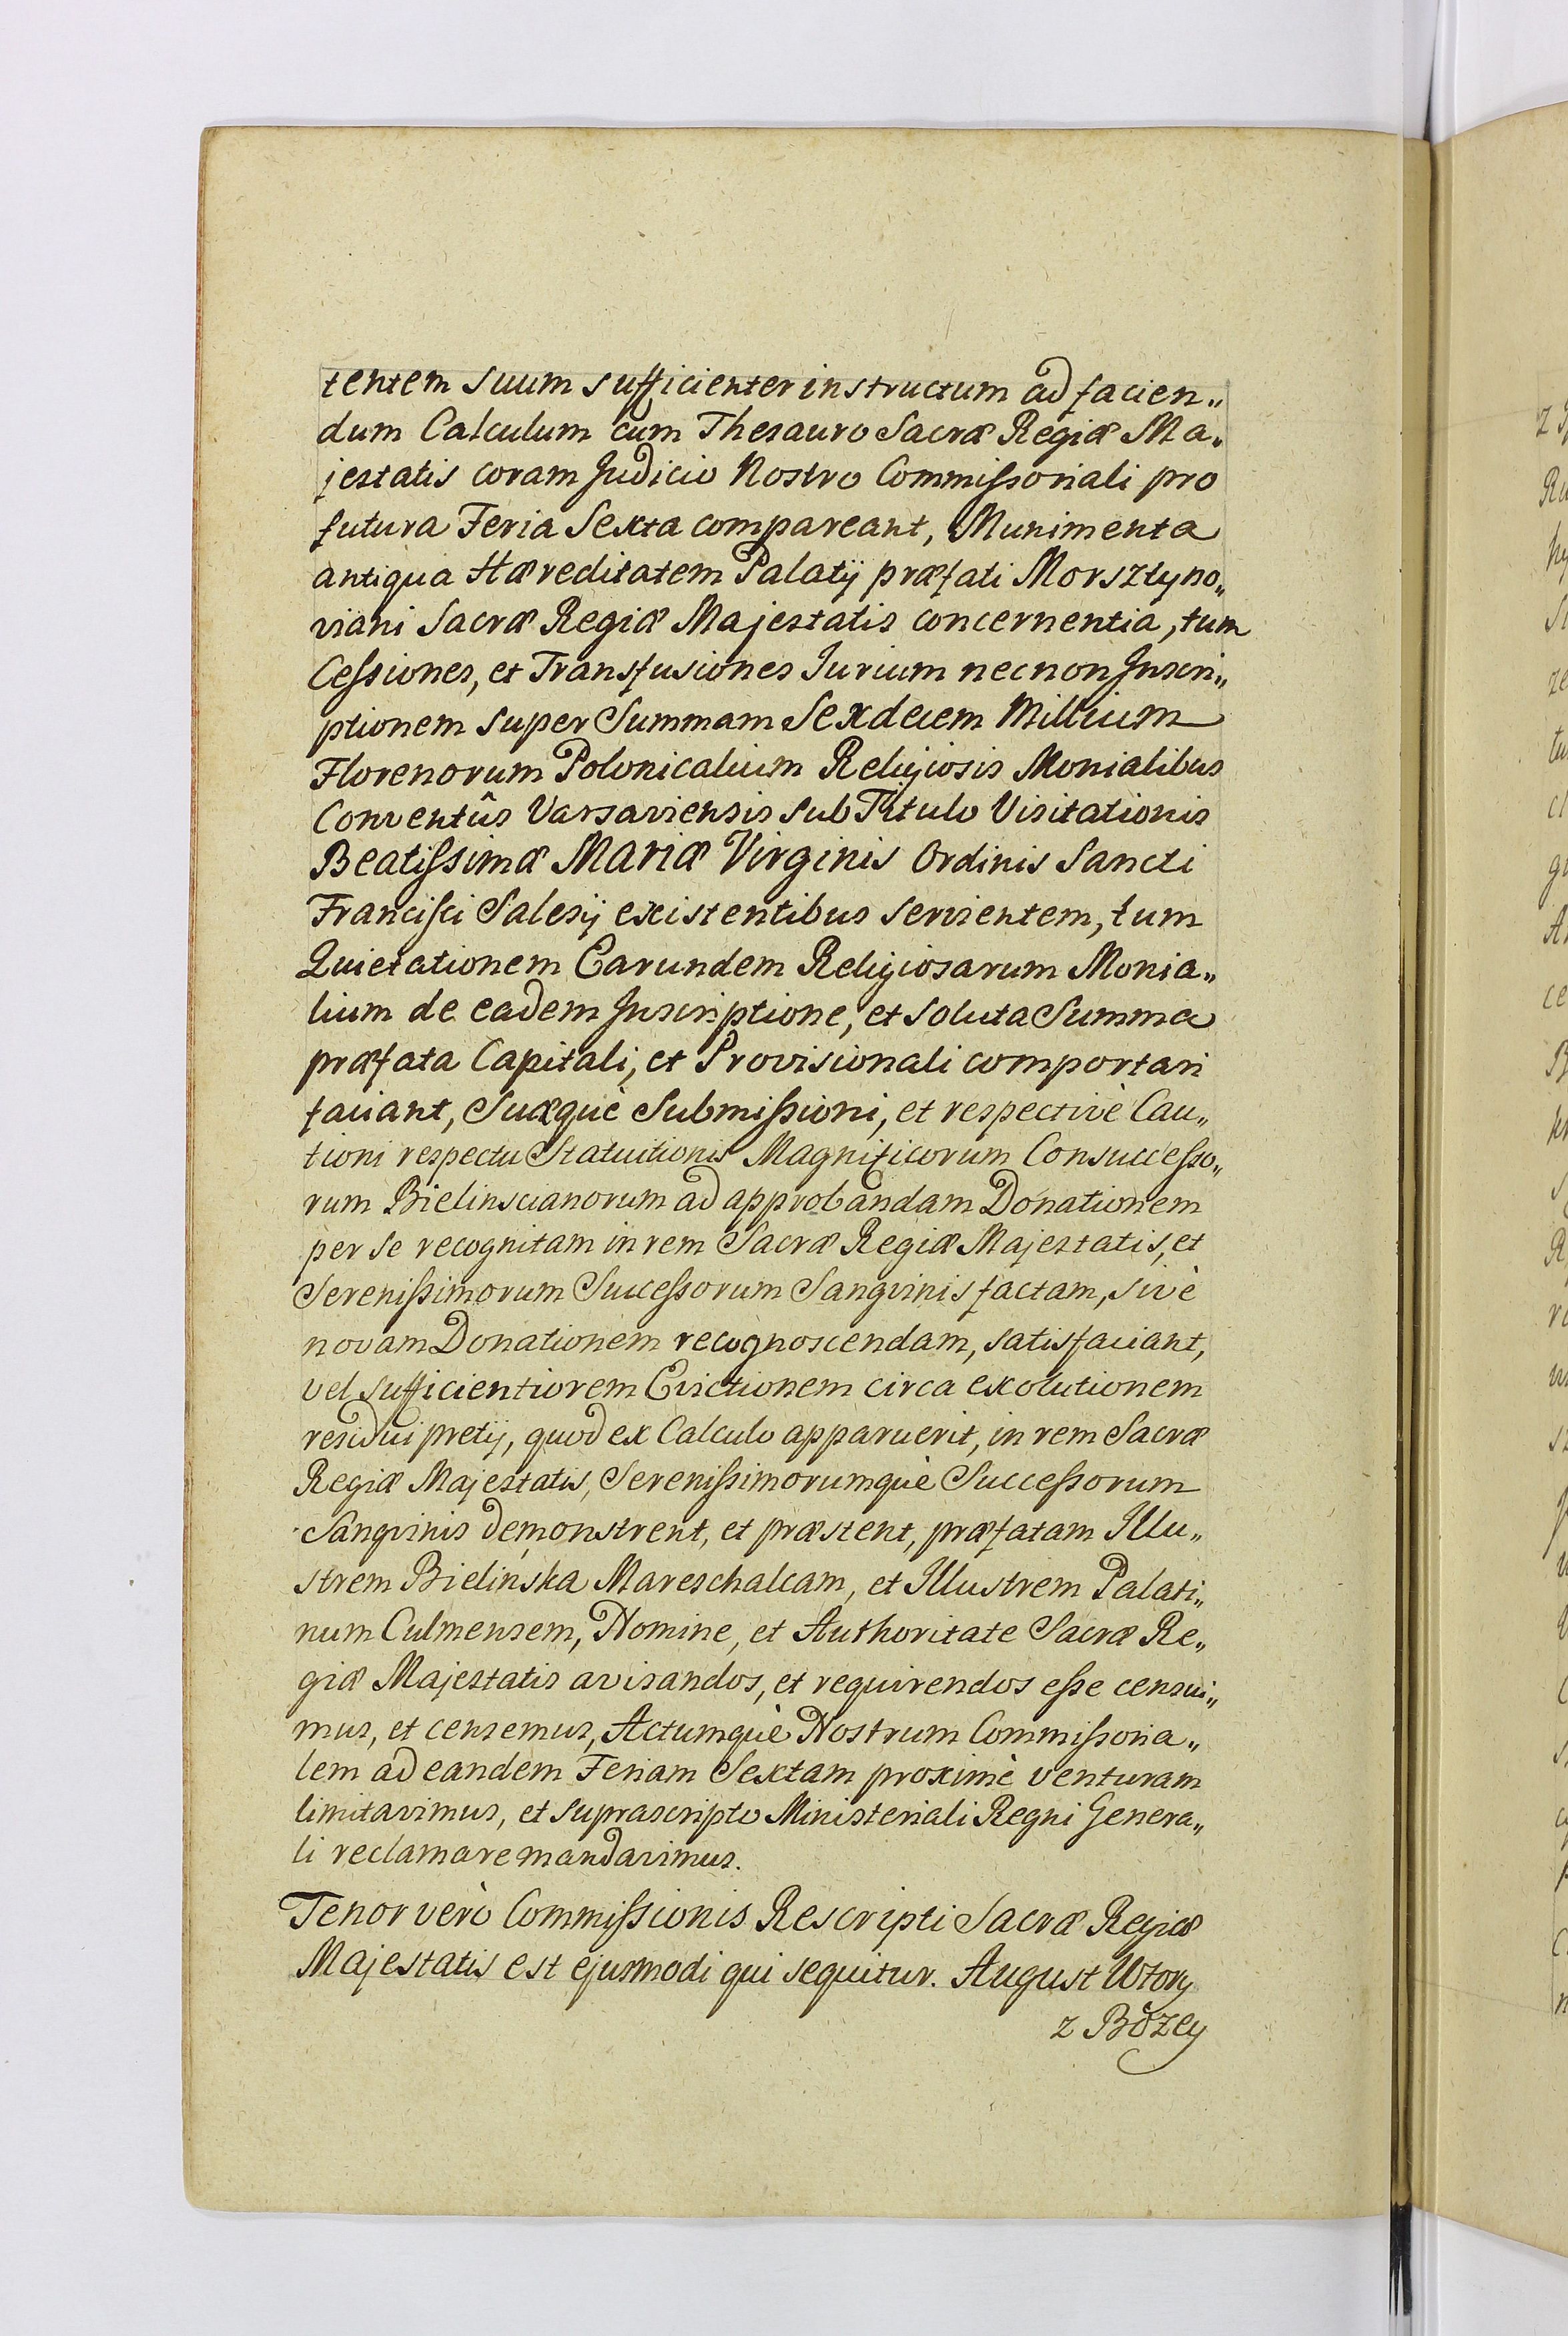 tentem suum sufficienter instructum ad facien„
dum Calculum cum Thesauro Sacræ Regiæ Ma„
jestatis coram Judicio Nostro Commiſsoriali pro
futura Feria Sexta compareant, Munimenta
antiqua Hæreditatem Palatij præfati Morsztyno„
viani Sacræ Regiæ Majestatis concernentia, tum
Ceſsiones, et Transfusiones Iurium necnon Inscri„
ptionem super Summam Sexdecem Millium
Florenorum Polonicalium Religiosis Monialibus
Conventûs Varsaviensis sub Titulo Visitationis
Beatiſsimæ Mariæ Virginis Ordinis Sancti
Franciſci Salesij existentibus servientem, tum
Quietationem Earundem Religiosarum Monia„
lium de eadem Inscriptione, et soluta Summa
præfata Capitali, et Provisionali comportari
faciant, Suæquè Submiſsioni, et respectivè Cau„
tioni respectu Statuitionis Magnificorum Consucceſso„
rum Bielinscianorum ad approbandam Donationem
per se recognitam in rem Sacræ Regiæ Majestatis, et
Sereniſsimorum Succeſsorum Sangvinis factam, sivè
novam Donationem recognoscendam, satisfaciant,
vel sufficientiorem Evictionem circa exolutionem
residui pretij, quod ex Calculo apparuerit, in rem Sacræ
Regiæ Majestatis, Sereniſsimorumquè Succeſsorum
Sangvinis demonstrent, et præstent, præfatam Illu„
strem Bielinska Mareschalcam, et Illustrem Palati„
num Culmensem, Nomine, et Authoritate Sacræ Re„
giæ Majestatis avisandos, et requirendos eſse censui„
mus, et censemus, Actumquè Nostrum Commiſsoria„
lem ad eandem Feriam Sextam proximè venturam
limitavimus, et suprascripto Ministeriali Regni Genera„
li reclamare mandavimus.
Tenor verò Commiſsionis Rescripti Sacræ Regiæ
Majestatis est ejusmodi qui sequitur. August Wtory
z Bożey